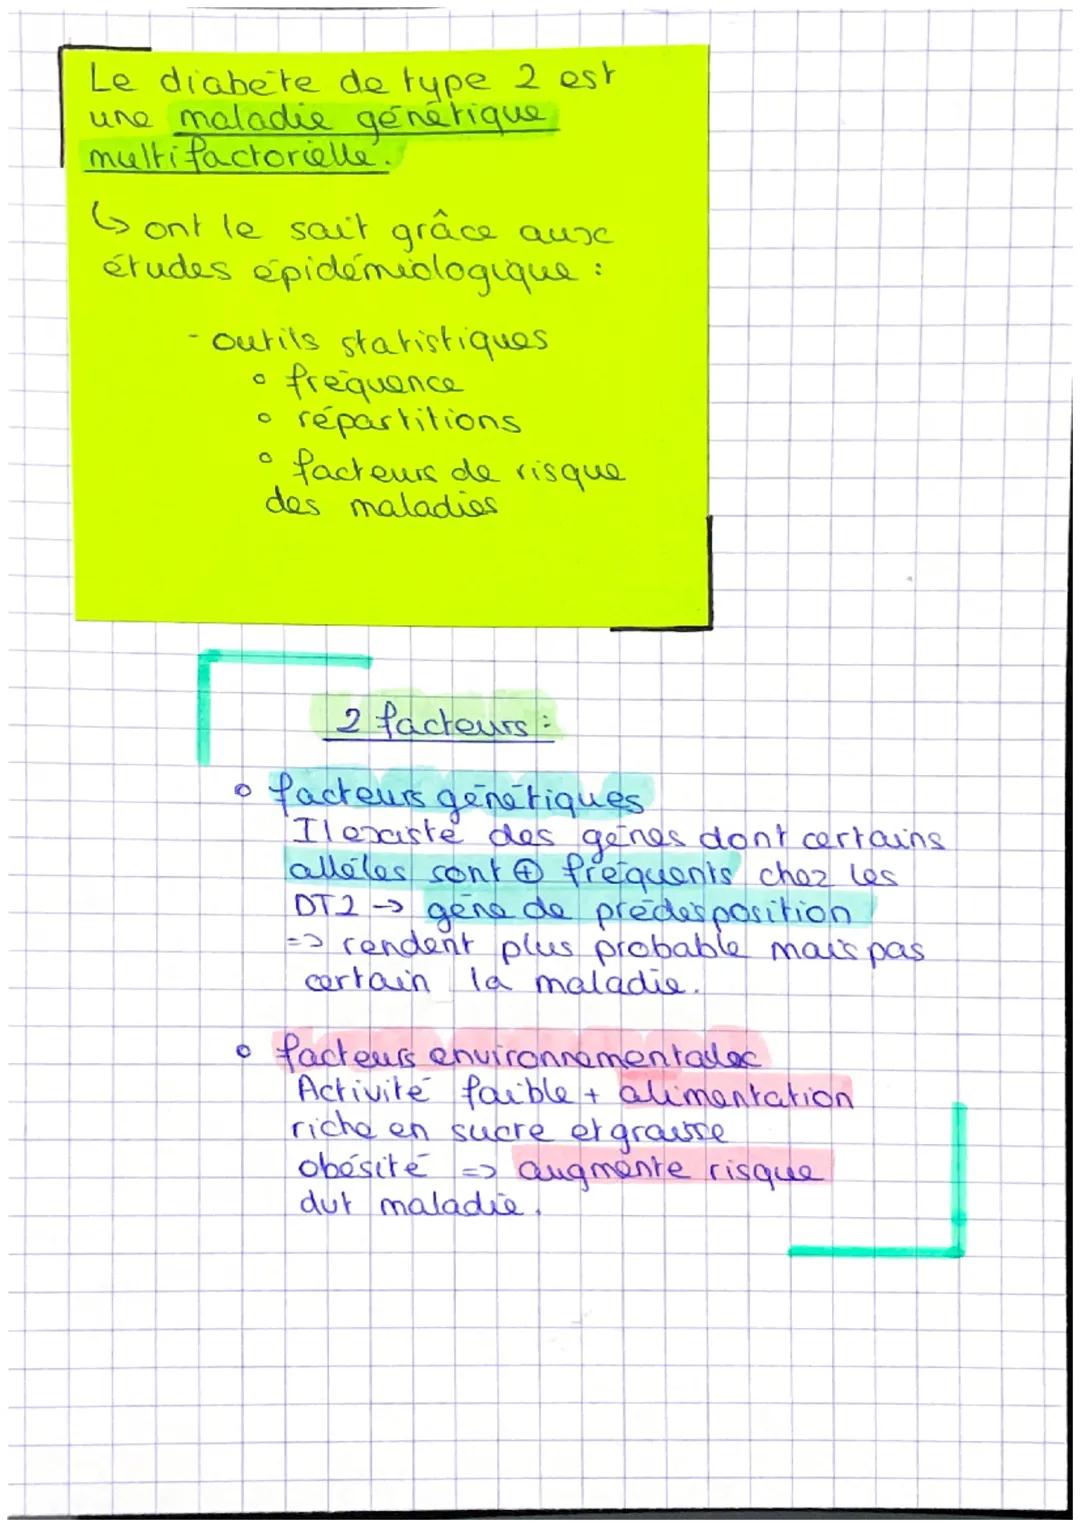 Le diabète de type 2 est
une maladie génétique
multifactorielle.
↳ ont le sait grâce aux
études épidémiologique :
- outils statistiques
◦ fréquence
◦ répartitions
◦ facteurs de risque
des maladies
2 facteurs :
◦ facteurs génétiques
Il existe des gènes dont certains
allèles sont ⊕ fréquents chez les
DT2 → gène de prédesposition
=> rendent plus probable mais pas
certain la maladie.
◦ facteurs environnementales
Activité faible + alimentation
riche en sucre et graisse
obésité => augmente risque
dut maladie.